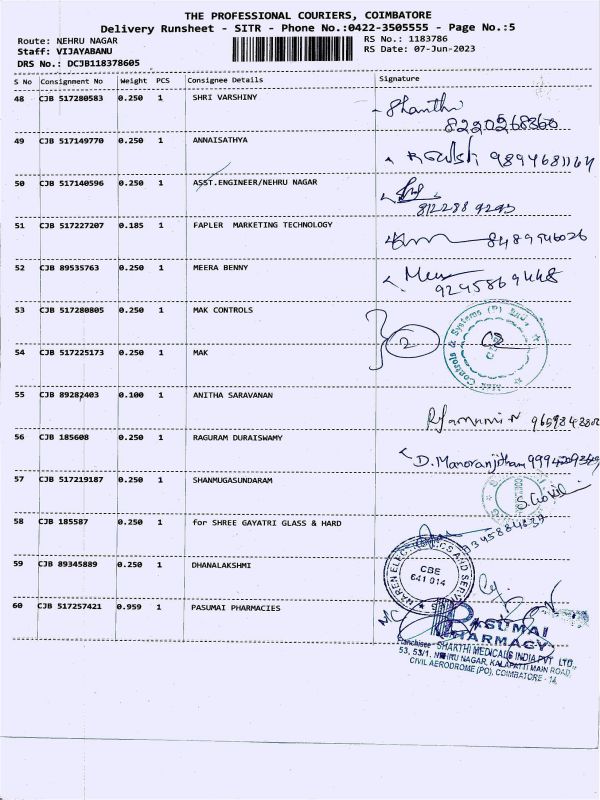 THE PROFESSIONAL COURIERS, COIMBATORE
Delivery Runsheet - SITR - Phone No.:0422-3505555 - Page No.:5
Route: NEHRU NAGAR
RS No.: 1183786
Staff: VIJAYABANU
RS Date: 07-Jun-2023
DRS No.: DCJB118378605
S No Consignment No Weight PCS Consignee Details Signature
48 CJB 517280583 0.250 1 SHRI VARSHINY Shanthi
8220268360
49 CJB 517149770 0.250 1 ANNAISATHYA 9894681164
50 CJB 517140596 0.250 1 ASST.ENGINEER/NEHRU NAGAR
812288 9293
51 CJB 517227207 0.185 1 FAPLER MARKETING TECHNOLOGY 8489946026
52 CJB 89535763 0.250 1 MEERA BENNY Meer
9245869448
53 CJB 517280805 0.250 1 MAK CONTROLS
2
Mak Controls & Systems (P)
54 CJB 517225173 0.250 1 MAK
55 CJB 89282403 0.100 1 ANITHA SARAVANAN
56 CJB 185608 0.250 1 RAGURAM DURAISWAMY
D. Manoranjitham
57 CJB 517219187 0.250 1 SHANMUGASUNDARAM
58 CJB 185587 0.250 1 for SHREE GAYATRI GLASS & HARD
59 CJB 89345889 0.250 1 DHANALAKSHMI
CBE
641 014
60 CJB 517257421 0.959 1 PASUMAI PHARMACIES
PASUMAI
PHARMACY
Franchisee SHAKTHI MEDICALS INDIA PVT LTD.,
53, 53/1, NEHRU NAGAR, KALAPATTI MAIN ROAD,
CIVIL AERODROME (PO), COIMBATORE - 14.